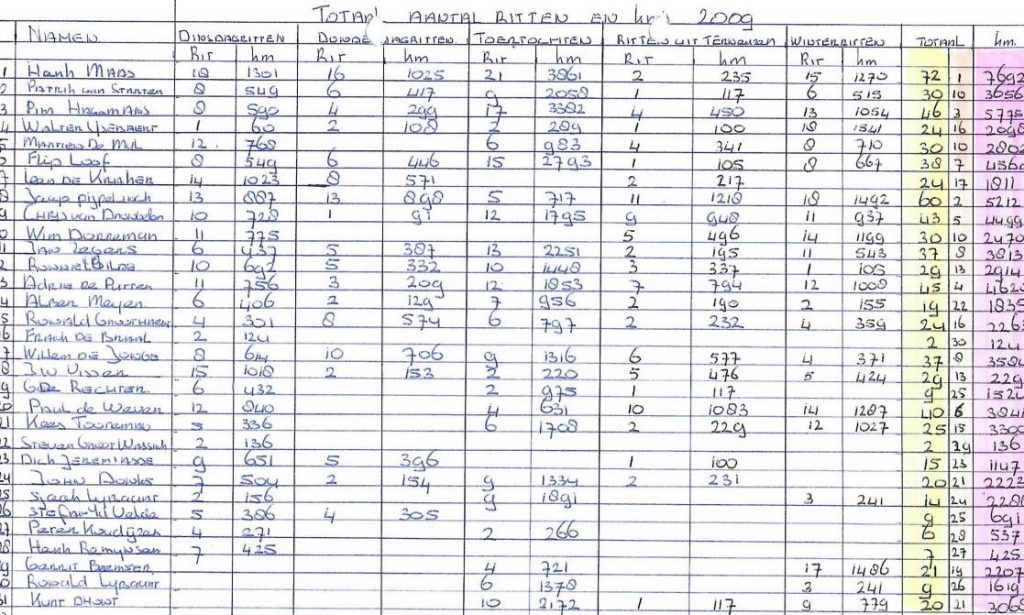 TOTAAL AANTAL RITTEN EN km's 2009
NAMEN DINSDAGRITTEN DONDERDAGRITTEN TOERTOCHTEN RITTEN UIT TERNEUZEN WINTERRITTEN TOTAAL km.
Rit km Rit km Rit km Rit km Rit km
1 Henk MAAS 18 1301 16 1025 21 3861 2 235 15 1270 72 1 7692
2 Patrick van Straten 8 549 6 417 9 2058 1 117 6 515 30 10 3656
3 Pim HAGEMAAS 8 590 4 299 17 3382 4 450 13 1054 46 3 5775
4 Walter 1 60 2 108 2 289 1 100 18 1541 24 16 2098
5 De Mul 12 768 6 983 4 341 8 710 30 10 2802
6 Flip Loof 8 549 6 446 15 2793 1 105 8 667 38 7 4560
7 Leen DE Kraker 14 1023 8 571 2 217 24 17 1811
8 Jaap 13 887 13 898 5 717 11 1218 18 1492 60 2 5212
9 CHRIS van 10 728 1 91 12 1795 9 948 11 937 43 5 4499
10 Wim Dorreman 11 775 5 496 14 1199 30 10 2470
11 Jan Zegers 6 437 5 387 13 2251 2 195 11 543 37 8 3813
12 10 692 5 332 10 1448 3 337 1 105 29 13 2914
13 Adrie De Putter 11 756 3 209 12 1853 7 794 12 1008 45 4 4620
14 Meyer 6 406 2 129 7 956 2 190 2 155 19 22 1835
15 Ronald 4 301 8 574 6 797 2 232 4 359 24 16 226
16 Frank DE 2 124 2 30 124
17 Willem DE Jonge 8 614 10 706 9 1316 6 577 4 371 37 8 3584
18 J.W Visser 15 1018 2 153 2 220 5 476 5 424 29 13 229
19 6 432 2 975 1 117 9 25 1524
20 Paul de 12 840 4 631 10 1083 14 1287 40 6 3841
21 Kees 5 336 6 1708 2 229 12 1027 25 15 3300
22 Steven 2 136 2 29 136
23 Dick JEREMIASSE 9 651 5 396 1 100 15 23 1147
24 JOHN 7 504 2 154 9 1334 2 231 20 21 2222
25 Sjaak 2 156 9 1891 3 241 14 24 2288
26 5 386 4 305 9 25 691
27 Peter 4 271 2 266 6 28 537
28 Henk 7 425 7 27 425
29 4 721 17 1486 21 19 2207
30 Ronald 6 1378 3 241 9 26 1619
31 Kurt 10 2172 1 117 9 779 20 21 3068